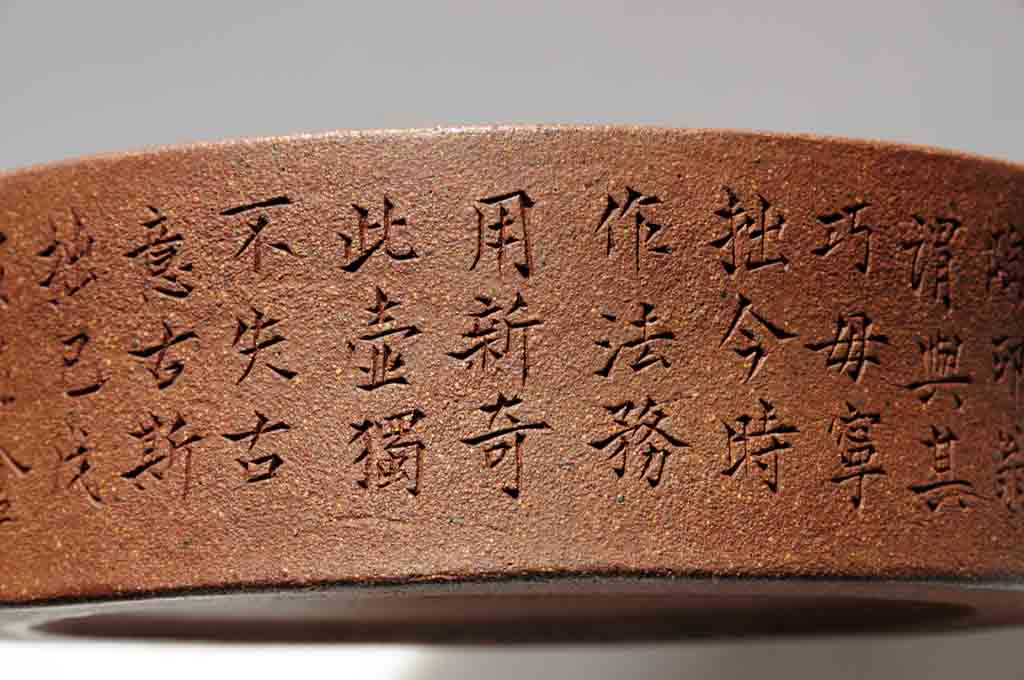 謂與其
巧毋寧
拙今時
作法務
用新奇
此壺獨
不失古
意古斯
拙已